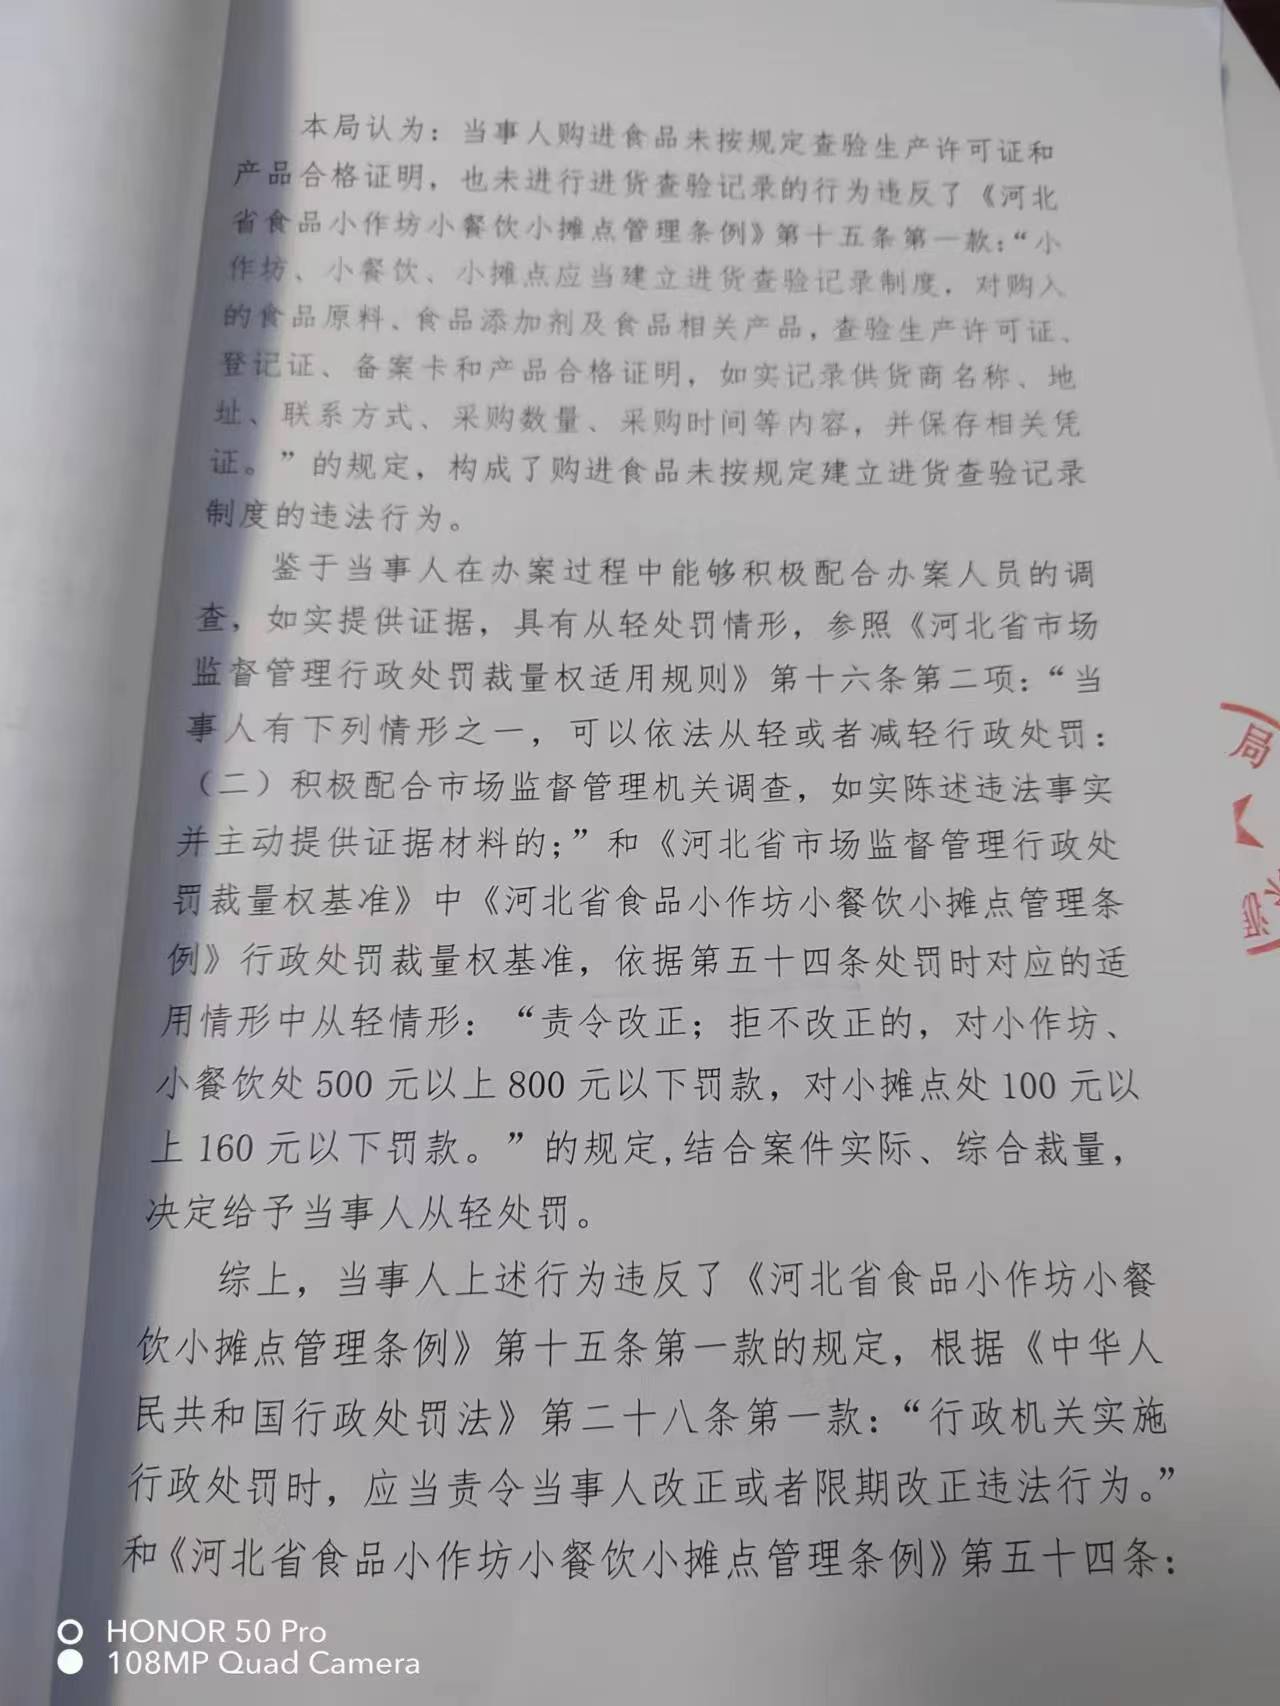 本局认为：当事人购进食品未按规定查验生产许可证和
产品合格证明，也未进行进货查验记录的行为违反了《河北
省食品小作坊小餐饮小摊点管理条例》第十五条第一款：“小
作坊、小餐饮、小摊点应当建立进货查验记录制度，对购入
的食品原料、食品添加剂及食品相关产品，查验生产许可证、
登记证、备案卡和产品合格证明，如实记录供货商名称、地
址、联系方式、采购数量、采购时间等内容，并保存相关凭
证。”的规定，构成了购进食品未按规定建立进货查验记录
制度的违法行为。
鉴于当事人在办案过程中能够积极配合办案人员的调
查，如实提供证据，具有从轻处罚情形，参照《河北省市场
监督管理行政处罚裁量权适用规则》第十六条第二项：“当
事人有下列情形之一，可以依法从轻或者减轻行政处罚：
（二）积极配合市场监督管理机关调查，如实陈述违法事实
并主动提供证据材料的；”和《河北省市场监督管理行政处
罚裁量权基准》中《河北省食品小作坊小餐饮小摊点管理条
例》行政处罚裁量权基准，依据第五十四条处罚时对应的适
用情形中从轻情形：“责令改正；拒不改正的，对小作坊、
小餐饮处500元以上800元以下罚款，对小摊点处100元以
上160元以下罚款。”的规定,结合案件实际、综合裁量，
决定给予当事人从轻处罚。
综上，当事人上述行为违反了《河北省食品小作坊小餐
饮小摊点管理条例》第十五条第一款的规定，根据《中华人
民共和国行政处罚法》第二十八条第一款：“行政机关实施
行政处罚时，应当责令当事人改正或者限期改正违法行为。”
和《河北省食品小作坊小餐饮小摊点管理条例》第五十四条：
局
HONOR 50 Pro
108MP Quad Camera